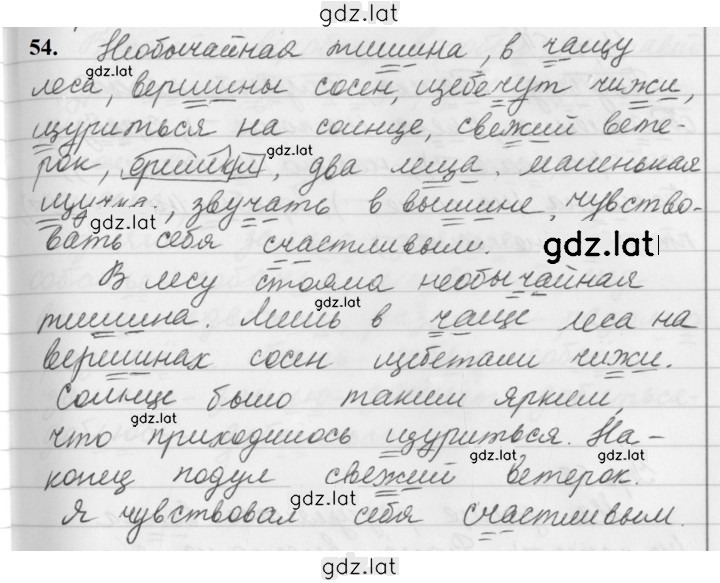 gdz.lat
54. Необычайная тишина, в чащу
gdz.lat
леса, вершины сосен, щебечут чижи,
щуриться на солнце, свежий вете-
рок, ёршики, два леща, маленькая
щучка, звучать в вышине, чувство-
gdz.lat
вать себя счастливым.
gdz.lat
В лесу стояла необычайная
gdz.lat
тишина. Лишь в чаще леса на
вершинах сосен щебетали чижи.
Солнце было таким ярким,
gdz.lat
что приходилось щуриться. На-
gdz.lat gdz.lat
конец подул свежий ветерок.
gdz.lat
Я чувствовал себя счастливым.
gdz.lat